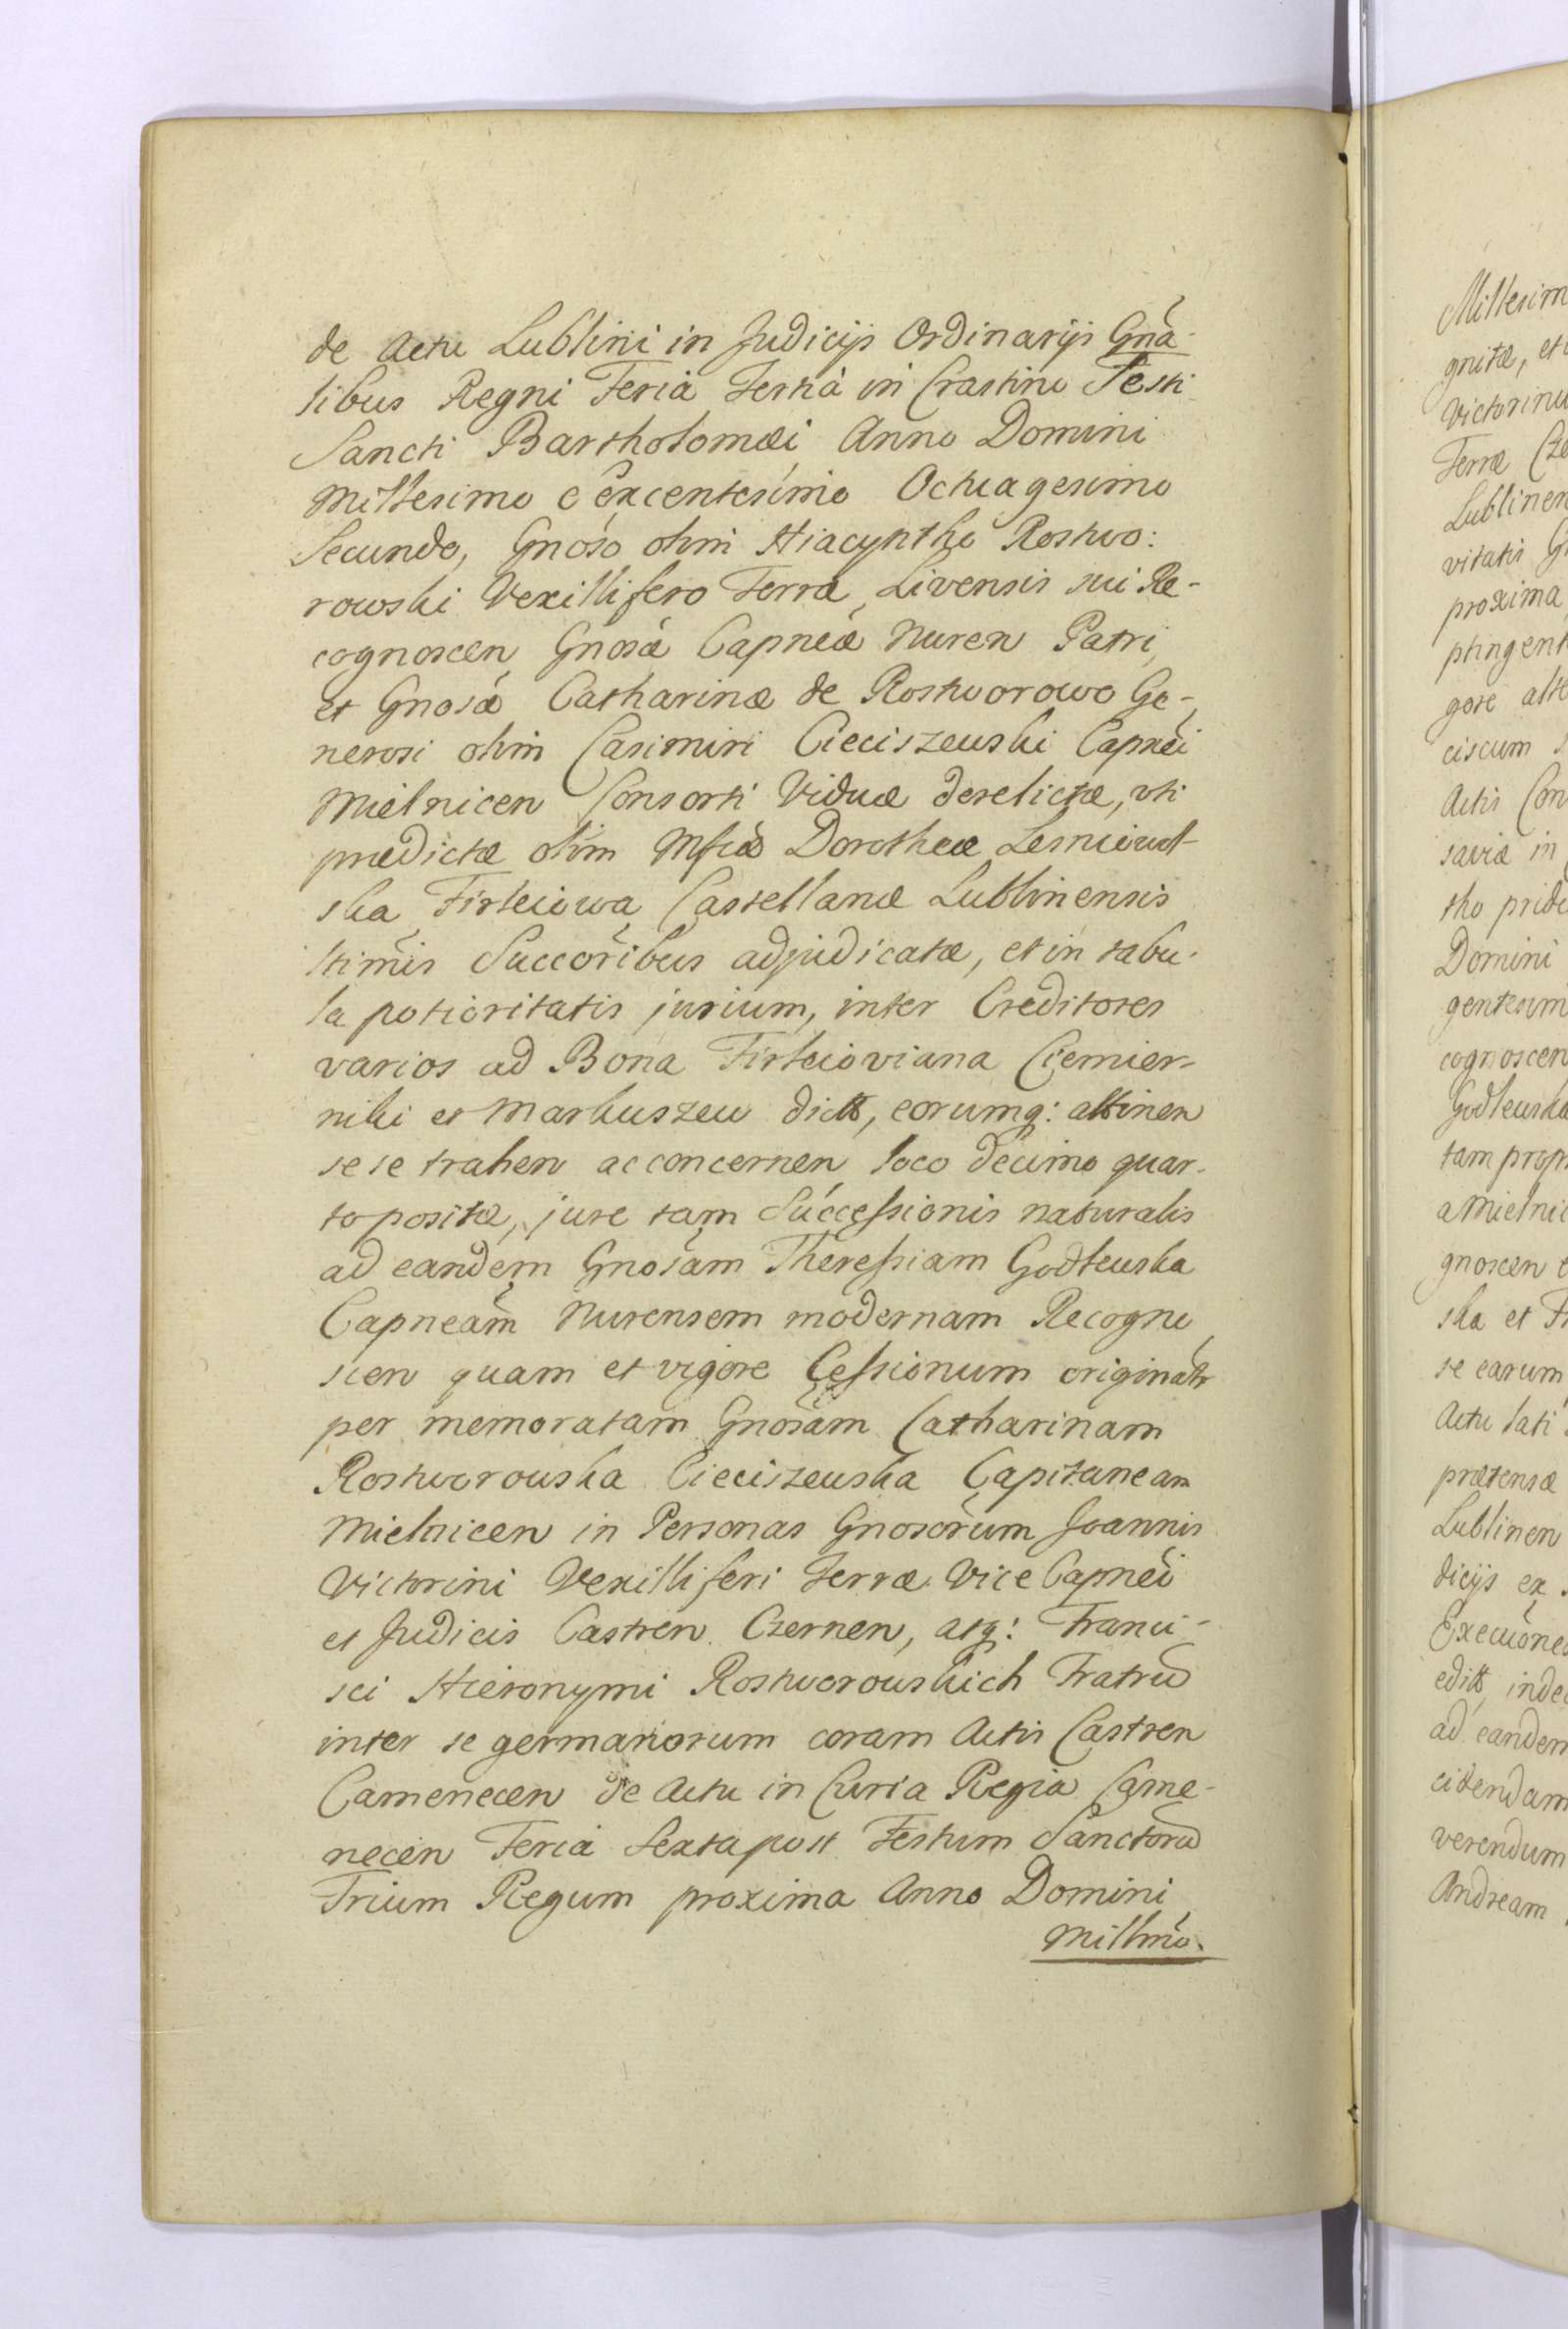 de Actu Lublini in Judicijs Ordinarijs Gna-
libus Regni Feria Tertia in Crastino Festi
Sancti Bartholomæi Anno Domini
Millesimo Sexcentesimo Octuagesimo
Secundo, Gnoso olim Hiacyntho Rostwo:
rowski Vexillifero Terræ Livensis sui Re-
cognoscen Gnosæ Capneæ Nuren Patri,
et Gnosæ Catharinæ de Rostworowo Ge-
nerosi olim Casimiri Cieciszewski Capnei
Mielnicen Consorti Viduæ derelictæ, vti
prædictæ olim Mfcæ Dorotheæ
ska Firleiowa Castellanæ Lublinensis
ltimis Succoribus adjudicatæ, et in tabu-
la potioritatis jurium, inter Creditores
varios ad Bona Firleioviana Ciemier-
niki et Markuszew dictt, eorumq: attinen
se se trahen ac concernen loco decimo quar-
to positæ, jure tam Successionis naturalis
ad eandem Gnosam Theressiam Godlewska
Capneam Nurensem modernam Recogno
scen quam et vigore Cessionum originaltr
per memoratam Gnosam Catharinam
Rostworowska Cieciszewska Capitaneam
Mielnicen in Personas Gnosorum Joannis
Victorini Vexilliferi Terræ Vice Capnei
et Judicis Castren Czernen, atq: Franci-
sci Hieronymi Rostworowskich Fratrũ
inter se germanorum coram Actis Castren
Camenecen de Actu in Curia Regia Came-
necen Feria Sexta post Festum Sanctorũ
Trium Regum proxima Anno Domini
Millmo.
Millesim
gnitæ, et
Victorinu
Terræ Cze
Lublinen
vitatis G
proxima
ptingent
gore alte
ciscum
Actis Con
saviæ in
tho pridi
Domini
gentesim
cognoscen
Godlewska
tam propr
a Mielnic
gnoscen
ska et Fr
se earum
Actu lati
prætensæ
Lublinen
dicijs ex
Execuones
editt, inde
ad eandem
citendam
verendum
Andream